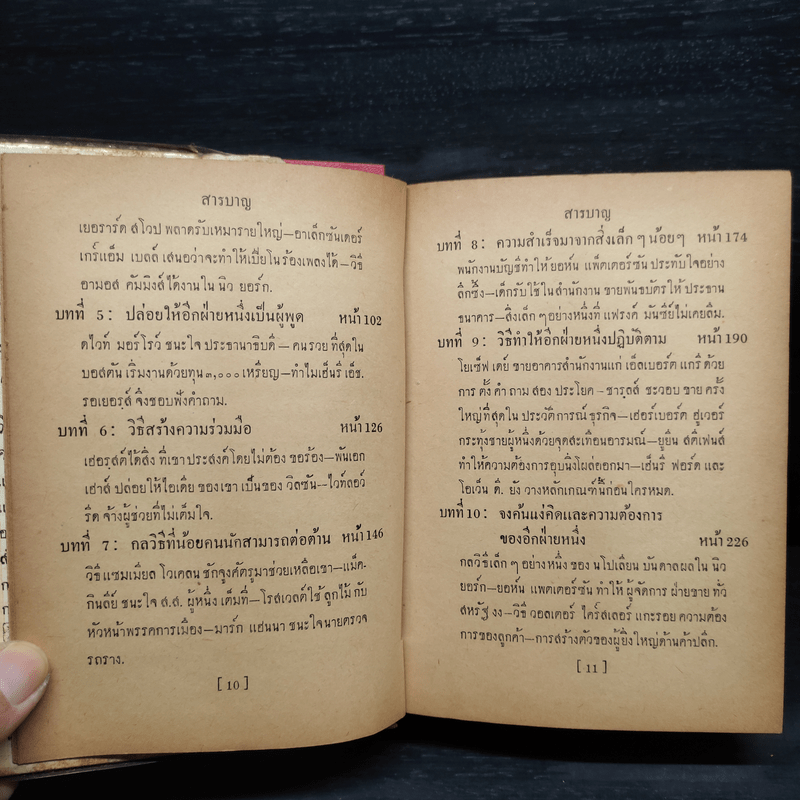 สารบาญ
เยอราร์ด สโวป พลาดรับเหมารายใหญ่—อาเล็กซันเดอร์
เกร์แฮ็ม เบลล์ เสนอว่าจะทำให้เบี่ยโนร้องเพลงได้—วิธี
อามอส คัมมิงส์ได้งานใน นิว ยอร์ก.
บทที่ 5: ปล่อยให้อีกฝ่ายหนึ่งเป็นผู้พูด หน้า 102
ดไวท์ มอร์โรว์ ชนะใจ ประธานาธิบดี—คนรวย ที่สุดใน
บอสตัน เริ่มงานด้วยทุน ๓,๐๐๐ เหรียญ—ทำไมเฮ็นรี่ เอ็ช.
รอเยอรส์ จึงชอบฟังคำถาม.
บทที่ 6: วิธีสร้างความร่วมมือ หน้า 126
เฮอรสต์ได้สิ่ง ที่เขา ประสงค์โดยไม่ต้อง ขอร้อง—พันเอก
เฮ้าส์ ปล่อยให้ไอเดีย ของเขา เป็นของ วิลซัน—ไวท์ลอว์
รีด จ้างผู้ช่วยที่ไม่เต็มใจ.
บทที่ 7: กลวิธีที่น้อยคนนักสามารถต่อต้าน หน้า 146
วิธี แซมเมียล โวเคลน ชักจูงศัตรูมาช่วยเหลือเขา—แม็ค-
กินลีย์ ชนะใจ ส.ส. ผู้หนึ่ง เต็มที่—โรสเวลต์ใช้ ลูกไม้ กับ
หัวหน้าพรรคการเมือง—มาร์ก แฮนนา ชนะใจนายตรวจ
รถราง.
[ 10 ]
สารบาญ
บทที่ 8: ความสำเร็จมาจากสิ่งเล็ก ๆ น้อย ๆ หน้า 174
พนักงานบัญชีทำให้ ยอห์น แพ็ตเตอร์ซัน ประทับใจอย่าง
ลึกซึ้ง—เด็กรับใช้ในสำนักงาน ขายพันธบัตรให้ ประธาน
ธนาคาร—สิ่งเล็ก ๆ อย่างหนึ่งที่ แฟรงค์ มันซีย์ไม่เคยลืม.
บทที่ 9: วิธีทำให้อีกฝ่ายหนึ่งปฏิบัติตาม หน้า 190
โยเซ็ฟ เดย์ ขายอาคารสำนักงานแก่ เอ็ลเบอร์ต แกรี ด้วย
การ ตั้ง คำ ถาม สอง ประโยค—ชารลส์ ชะวอบ ขาย ครั้ง
ใหญ่ที่สุดใน ประวัติการณ์ธุรกิจ—เฮอร์เบอร์ต ฮูเวอร์
กระทุ้งขายผู้หนึ่งด้วยจุดสะเทือนอารมณ์—ยูยีน สตีเฟนส์
ทำให้ความต้องการอุบนิ่งโผล่ออกมา—เฮ็นรี่ ฟอร์ด และ
โอเว็น ดี. ยัง วางหลักเกณฑ์นี้ก่อนใครหมด.
บทที่ 10: จงค้นแง่คิดและความต้องการ
ของอีกฝ่ายหนึ่ง หน้า 226
กลวิธีเล็ก ๆ อย่างหนึ่ง ของ นโปเลียน บันดาลผลใน นิว
ยอร์ก—ยอห์น แพตเตอร์ซัน ทำให้ ผู้จัดการ ฝ่ายขาย ทั่ว
สหรัฐ งง—วิธี วอลเตอร์ ไคร์สเลอร์ แกะรอย ความต้อง
การของลูกค้า—การสร้างตัวของผู้ยิ่งใหญ่ด้านค้าปลีก.
[ 11 ]